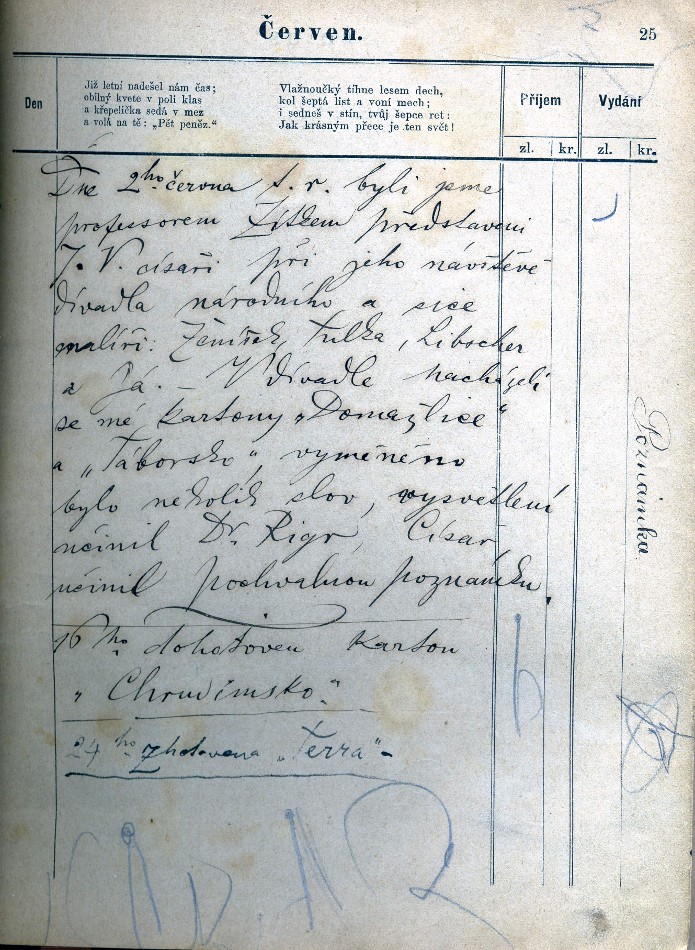 Červen.
25
Den
Již letní nadešel nám čas;
obilný kvete v poli klas
a křepelička sedá v mez
a volá na tě: „Pět peněz.“
Vlažnoučký tíhne lesem dech,
kol šeptá list a voní mech;
i sedneš v stín, tvůj šepce ret:
Jak krásným přece je ten svět!
Příjem
Vydání
zl.
kr.
zl.
kr.
Dne 2ho června t. r. byli jsme
professorem Zítkem představeni
J. V. císaři při jeho návštěvě
divadla národního a sice
malíři: Ženíšek, Tulka, Libscher
a Já. – V divadle nacházeli
se mé kartony „Domažlice“
a „Táborsko“, vyměněno
bylo několik slov, vysvětlení
učinil Dr. Rigr, Císař
učinil pochvalnou poznámku.
16 ho dohotoven karton
„Chrudimsko“
24 ho zhotovena „Terra“ –
Poznámka